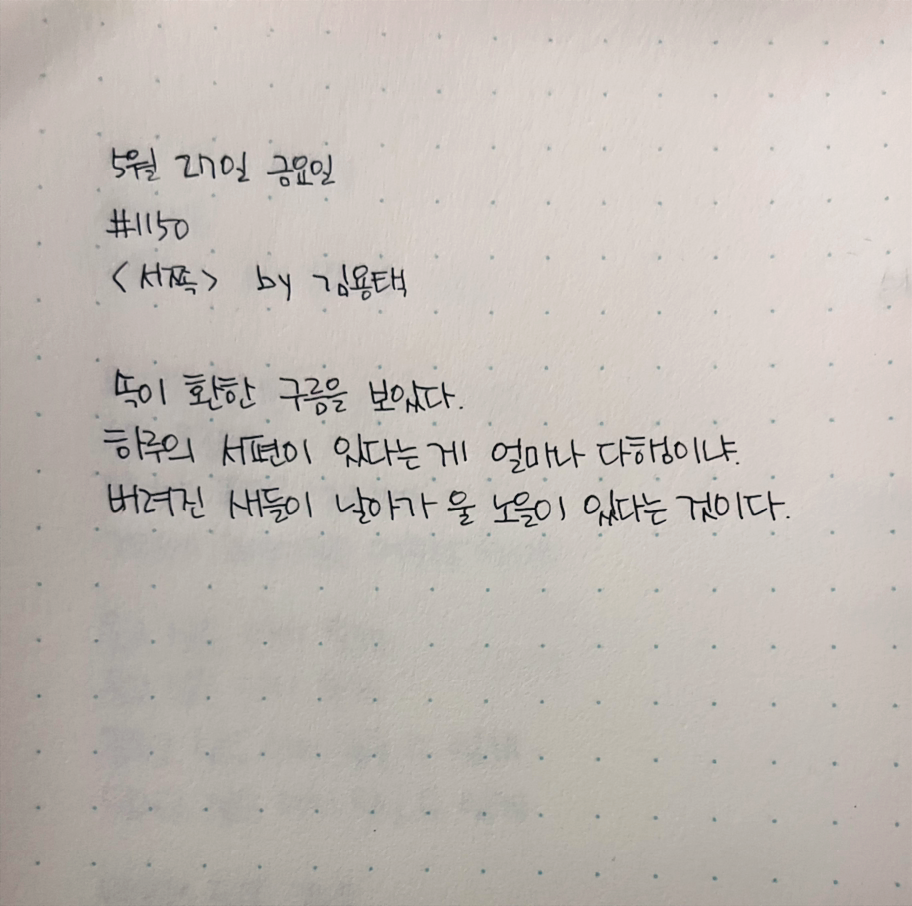 5월 27일 금요일
#1150
<서쪽> by 김용택
속이 환한 구름을 보았다.
하루의 서편이 있다는 게 얼마나 다행이냐.
버려진 새들이 날아가 울 노을이 있다는 것이다.